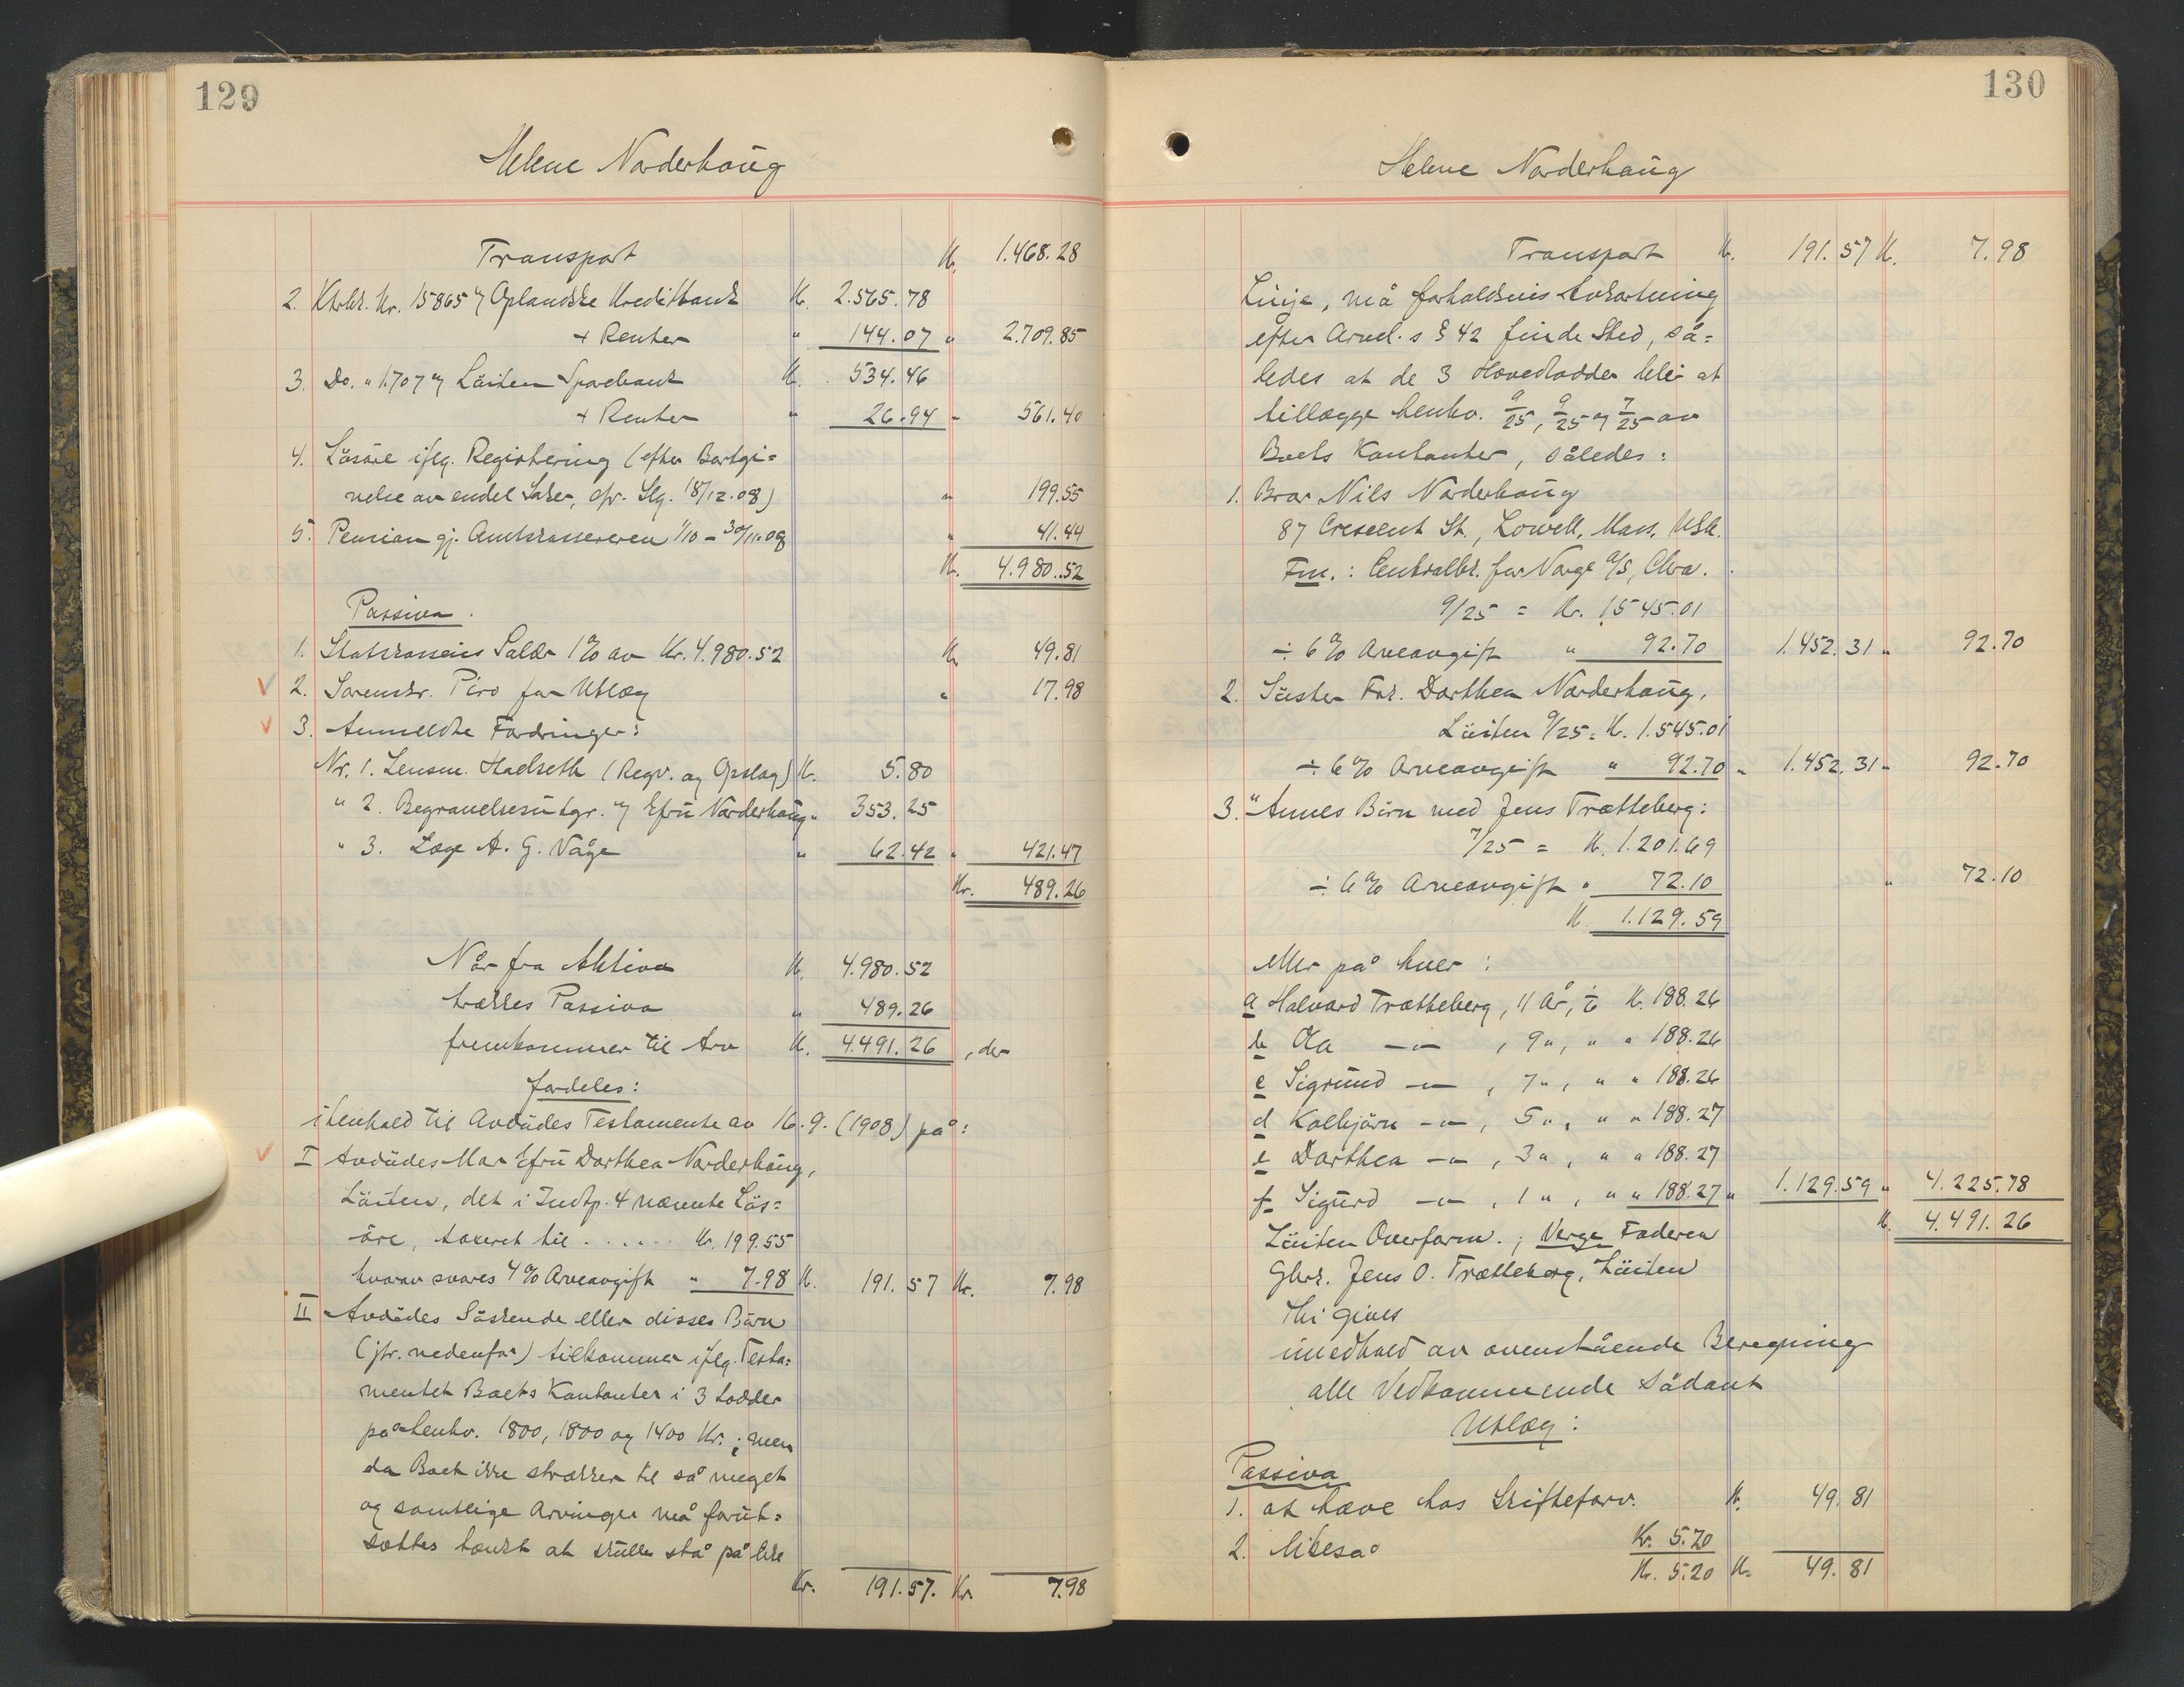 129
Helene Norderhaug
Transport Kr. 1.468.28
2. Ktrbk. Nr. 15865 Oplandske Kreditbank Kr. 2.565.78
+ Renter " 144.07 " 2.709.85
3. Do. " 1.707 Löiten Sparebank Kr. 534.46
+ Renter " 26.94 " 561.40
4. Lösöre iflg. Registrering (efter Bortgi=
velse av endel Saker, cfr. Slg. 18/12.08) " 199.55
5. Pension gj. Amtskassereren 1/10 - 30/11.08 " 41.44
Kr. 4.980.52
Passiva.
1. Statskassens Salær 1% av Kr. 4.980.52 Kr. 49.81
2. Sorenskr. Piro for Utlæg " 17.98
3. Anmeldte Fordringer:
Nr. 1. Lensm. Haelseth (Regv. og Opslag) Kr. 5.80
" 2. Begravelsesutgr. Efru Norderhaug " 353.25
" 3. Læge A. G. Våge " 62.42 " 421.47
Kr. 489.26
Når fra Aktiva Kr. 4.980.52
trækkes Passiva " 489.26
fremkommer til Arv Kr. 4.491.26, der
fordeles:
i henhold til Avdödes Testamente av 16.9. (1908) på:
I Avdödes Mor Efru Dorthea Norderhaug,
Löiten, det i Indtp. 4 nævnte Lös=
öre, taxeret til ...... Kr. 199.55
hvorav svares 4% Arveavgift " 7.98 Kr. 191.57 Kr. 7.98
II Avdödes Söskende eller disses Börn
(jfr. nedenfor) tilkommer iflg. Testa=
mentet Boets Kontanter i 3 Lodder
på henhv. 1800, 1800 og 1400 Kr.; men
da Boet ikke strækker til så meget
og samtlige Arvinger må forut=
sættes tænkt at skulle stå på like
Kr. 191.57. Kr. 7.98
130
Helene Norderhaug
Transport Kr. 191.57 Kr. 7.98
Linje, må forholdsvis Avkortning
efter Arvel.s § 42 finde Sted, så=
ledes at de 3 Hovedlodder blir at
tillægge henhv. 9/25, 9/25 og 7/25 av
Boets Kontanter, således:
1. Bror Nils Norderhaug
87 Crescent St., Lowell, Mass, USA.
Fm.: Centralbk. for Norge A/S, Chra.
9/25 = Kr. 1545.01
÷ 6% Arveavgift " 92.70 1.452.31 " 92.70
2. Söster Frk. Dorthea Norderhaug,
Löiten 9/25 = Kr. 1.545.01
÷ 6% Arveavgift " 92.70 " 1.452.31 " 92.70
3. " Annes Börn med Jens Trætteberg:
7/25 = Kr. 1.201.69
÷ 6% Arveavgift " 72.10 " 72.10
Kr. 1.129.59
eller på hver:
a Halvard Trætteberg, 11 År, 1/6 Kr. 188.26
b Ola —"— , 9 ", " " 188.26
c Sigrund —"— , 7 ", " " 188.26
d Kolbjörn —"— , 5 ", " " 188.27
e Dorthea —"— , 3 ", " " 188.27
f Sigurd —"— , 1 ", " " 188.27 " 1.129.59 " 4.225.78
Kr. 4.491.26
Löiten Overform.; Verge Faderen
Gbrk. Jens O. Trætteberg, Löiten
Thi gives
i medhold av ovenstående Beregning
alle Vedkommende sådant
Utlæg:
Passiva
1. at hæve hos Skifteforv. Kr. 49.81
2. likeså Kr. 5.20
Kr. 5.20 Kr. 49.81